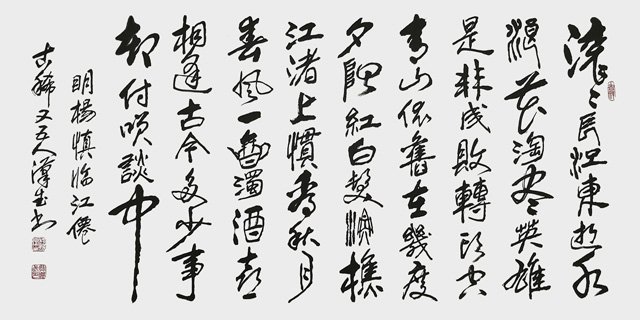 滚〻長江東逝水
浪花淘尽英雄
是非成敗轉头空
青山依舊在幾度
夕陽紅白髮漁樵
江渚上慣看秋月
春風一壺濁酒喜
相逢古今多少事
都付笑談中
明楊慎臨江僊
古稀又五人漢书